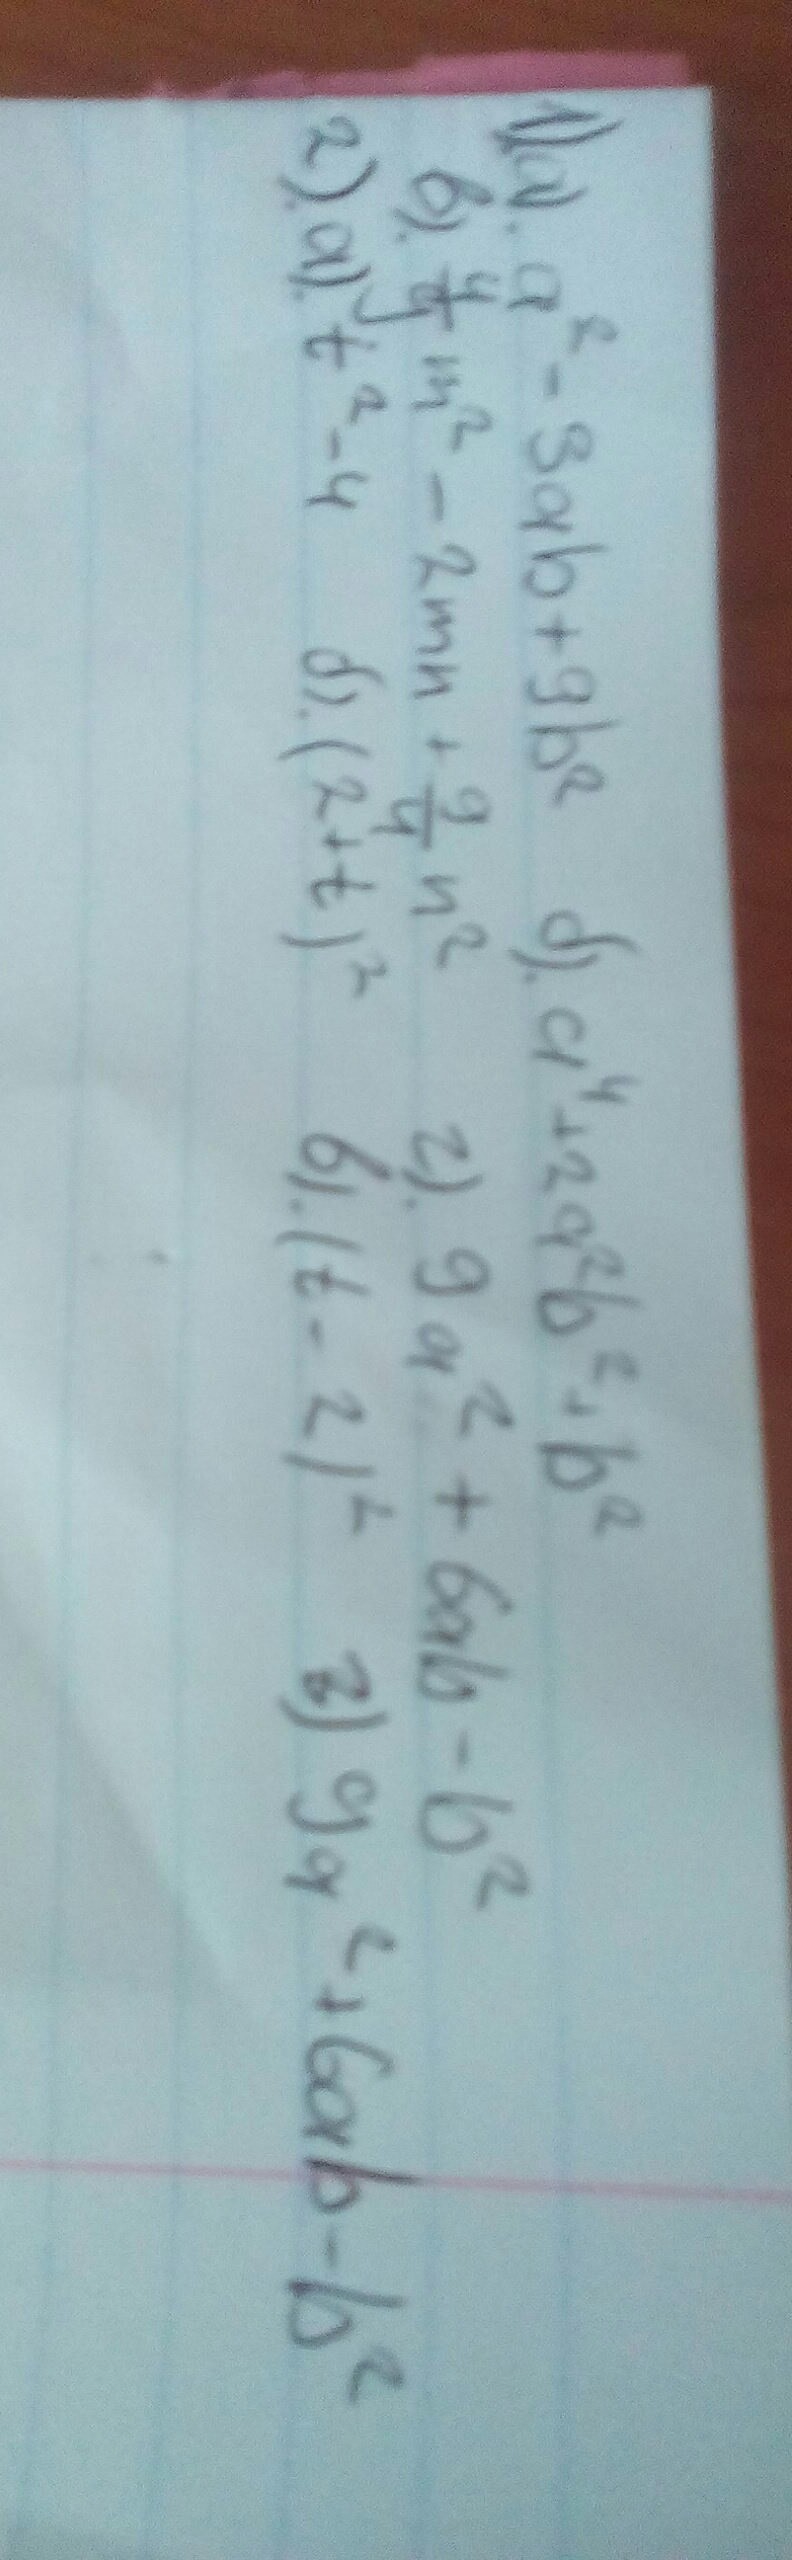 1) а). a² - 3ab + 9b² б). a⁴ + 2a²b² + b²
в). 4/9 m² - 2mn + 9/4 n² г). 9a² + 6ab - b²
2). а). t² - 4 б). (2+t)² в). (t - 2)² г) 9a² + 6ab - b²